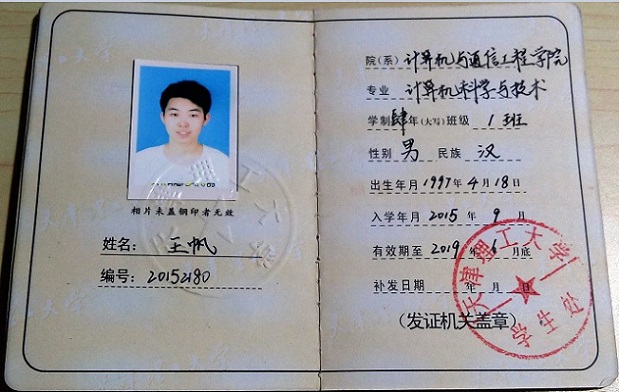 相片未盖钢印者无效
姓名: 王帆
编号: 20152180
院(系) 计算机与通信工程学院
专业 计算机科学与技术
学制肆年(大写)班级 1 班
性别 男 民族 汉
出生年月 1997年 4月 18日
入学年月 2015年 9月
有效期至 2019年 6月底
补发日期 年 月 日
(发证机关盖章)
天津理工大学
学生处